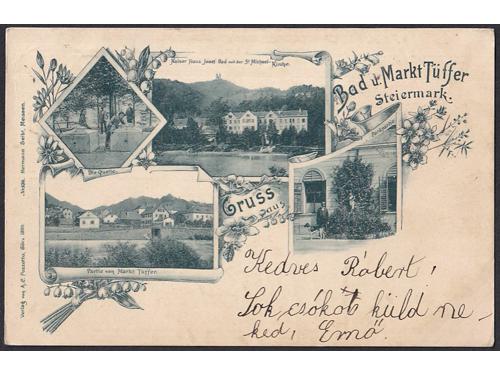 Kaiser Franz Josef Bad mit der St. Michael-Kirche.
Bad u. Markt Tüffer
Steiermark.
Die Quelle.
Gruss
aus
Partie von Markt Tüffer.
Kedves Róbert!
Sok csókot küld ne-
ked, Ernő.
Verlag von A. C. Pozzetto, 1899.
Hermann Seibt, Meissen.